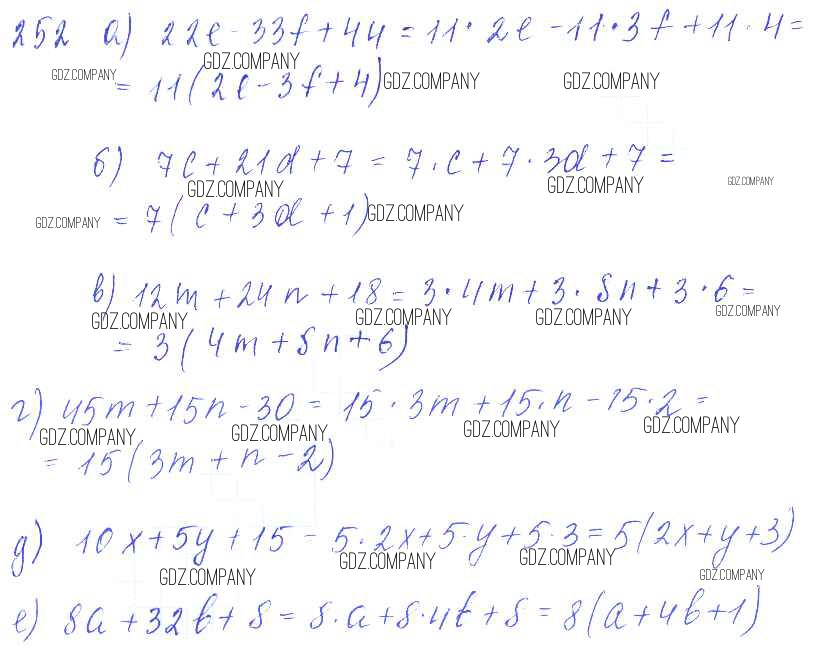 252 а) 22e - 33f + 44 = 11 · 2e - 11 · 3f + 11 · 4 =
GDZ.COMPANY GDZ.COMPANY
= 11(2e - 3f + 4) GDZ.COMPANY GDZ.COMPANY
б) 7c + 21d + 7 = 7 · c + 7 · 3d + 7 =
GDZ.COMPANY GDZ.COMPANY GDZ.COMPANY
GDZ.COMPANY = 7(c + 3d + 1) GDZ.COMPANY
в) 12m + 24n + 18 = 3 · 4m + 3 · 8n + 3 · 6 =
GDZ.COMPANY GDZ.COMPANY GDZ.COMPANY GDZ.COMPANY
= 3(4m + 8n + 6)
г) 45m + 15n - 30 = 15 · 3m + 15 · n - 15 · 2 =
GDZ.COMPANY GDZ.COMPANY GDZ.COMPANY GDZ.COMPANY
= 15(3m + n - 2)
д) 10x + 5y + 15 = 5 · 2x + 5 · y + 5 · 3 = 5(2x + y + 3)
GDZ.COMPANY GDZ.COMPANY GDZ.COMPANY GDZ.COMPANY
е) 8a + 32b + 8 = 8 · a + 8 · 4b + 8 = 8(a + 4b + 1)